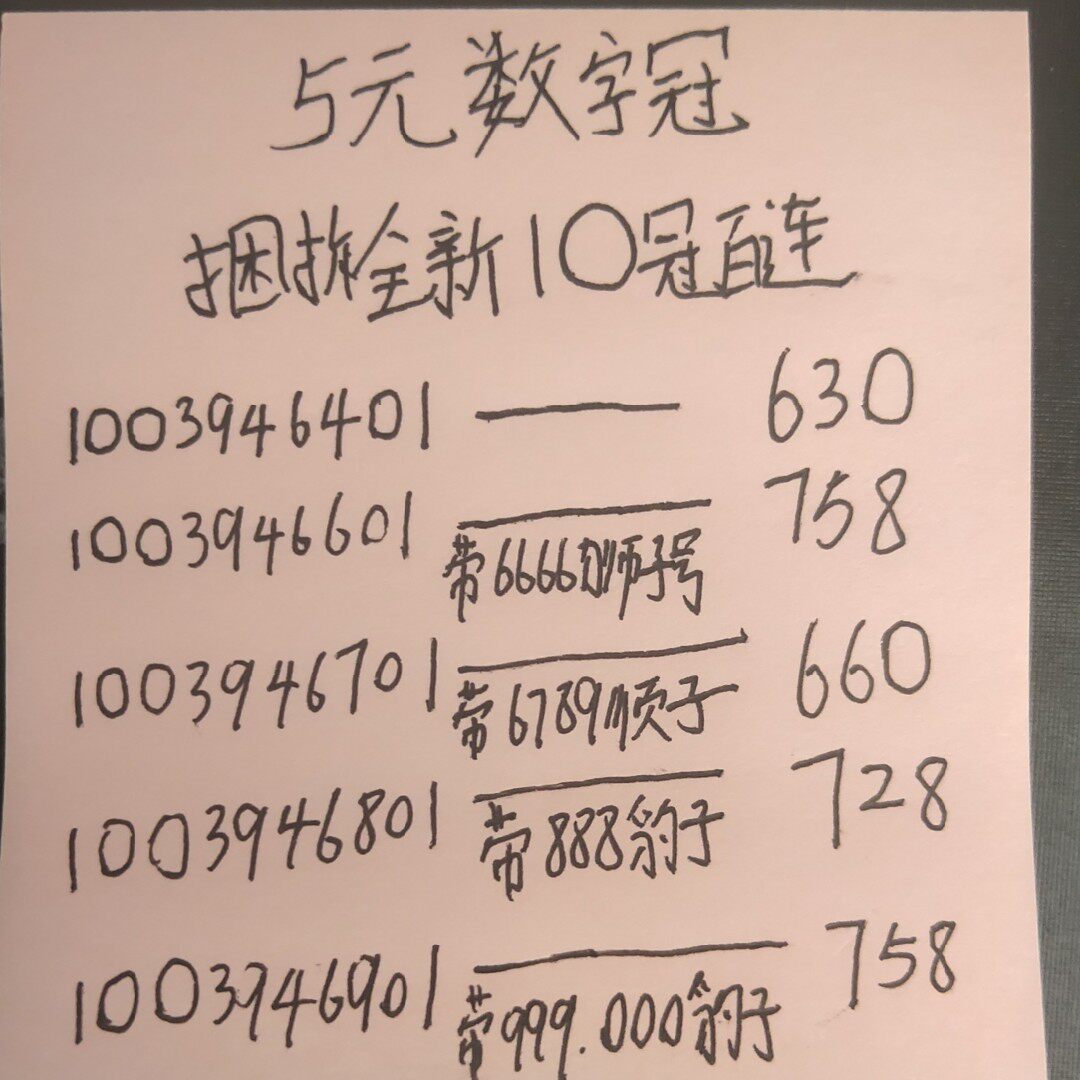 5元数字冠
捆拆全新10冠百连
1003946401 —— 630
1003946601 —— 758
带6666狮子号
1003946701 —— 660
带6789顺子
1003946801 —— 728
带888豹子
1003946901 —— 758
带999.000豹子